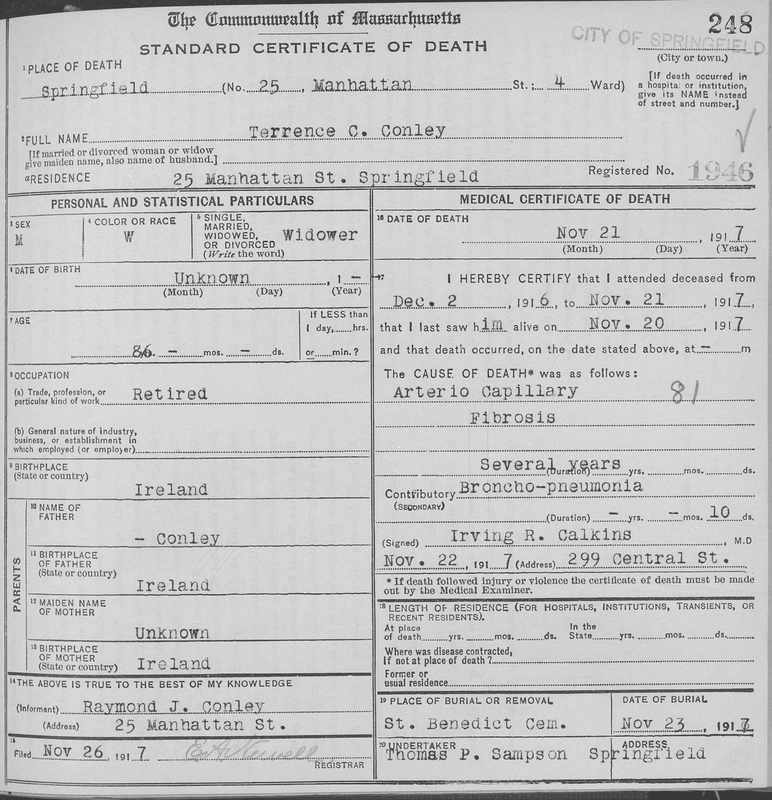 The Commonwealth of Massachusetts
248
STANDARD CERTIFICATE OF DEATH
CITY OF SPRINGFIELD
(City or town.)
1 PLACE OF DEATH
Springfield (No. 25, Manhattan St.; 4 Ward)
[If death occurred in a hospital or institution, give its NAME instead of street and number.]
2 FULL NAME Terrence C. Conley
[If married or divorced woman or widow give maiden name, also name of husband.]
Registered No. 1946
RESIDENCE 25 Manhattan St. Springfield
PERSONAL AND STATISTICAL PARTICULARS
3 SEX
M
4 COLOR OR RACE
W
5 SINGLE, MARRIED, WIDOWED, OR DIVORCED (Write the word)
Widower
6 DATE OF BIRTH
Unknown, 1 —
(Month) (Day) (Year)
7 AGE
86 — mos. — ds.
If LESS than
1 day, hrs.
or min.?
8 OCCUPATION
(a) Trade, profession, or particular kind of work Retired
(b) General nature of industry, business, or establishment in which employed (or employer)
9 BIRTHPLACE
(State or country)
Ireland
PARENTS
10 NAME OF FATHER
— Conley
11 BIRTHPLACE OF FATHER
(State or country)
Ireland
12 MAIDEN NAME OF MOTHER
Unknown
13 BIRTHPLACE OF MOTHER
(State or country) Ireland
14 THE ABOVE IS TRUE TO THE BEST OF MY KNOWLEDGE
(Informant) Raymond J. Conley
(Address) 25 Manhattan St.
15
Filed Nov 26, 1917
REGISTRAR
MEDICAL CERTIFICATE OF DEATH
16 DATE OF DEATH
Nov 21, 1917
(Month) (Day) (Year)
17 I HEREBY CERTIFY that I attended deceased from
Dec. 2, 1916, to Nov. 21, 1917,
that I last saw him alive on Nov. 20, 1917
and that death occurred, on the date stated above, at — m
The CAUSE OF DEATH* was as follows:
Arterio Capillary 81
Fibrosis
Several years
(Duration) yrs. mos. ds.
Contributory Broncho-pneumonia
(SECONDARY)
(Duration) — yrs. — mos. 10 ds.
(Signed) Irving R. Calkins, M.D
Nov. 22, 1917 (Address) 299 Central St.
* If death followed injury or violence the certificate of death must be made out by the Medical Examiner.
18 LENGTH OF RESIDENCE (FOR HOSPITALS, INSTITUTIONS, TRANSIENTS, OR RECENT RESIDENTS).
At place of death yrs. mos. ds. In the State yrs. mos. ds.
Where was disease contracted,
If not at place of death?
Former or usual residence
19 PLACE OF BURIAL OR REMOVAL
St. Benedict Cem.
DATE OF BURIAL
Nov 23, 1917
20 UNDERTAKER
Thomas P. Sampson
ADDRESS
Springfield